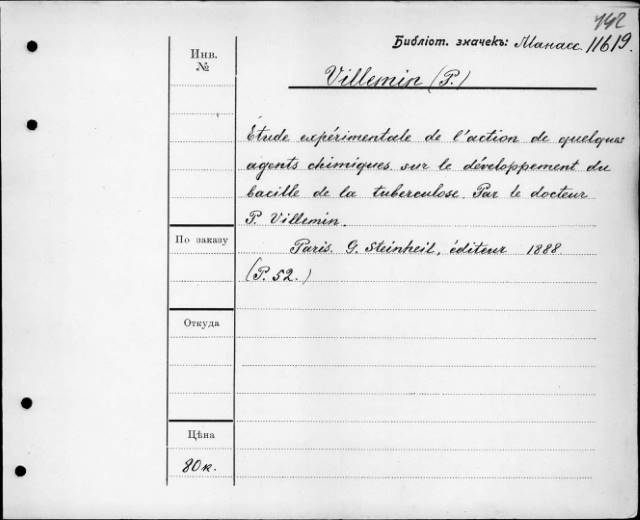 142
Библіот. значекъ: Манасс. 11619.
Инв.
№
Villemin (P.)
Etude expérimentale de l'action de quelques
agents chimiques sur le développement du
bacille de la tuberculose. Par le docteur
P. Villemin.
По заказу
Paris. G. Steinheil, éditeur 1888.
(P. 52.)
Откуда
Цѣна
80 к.